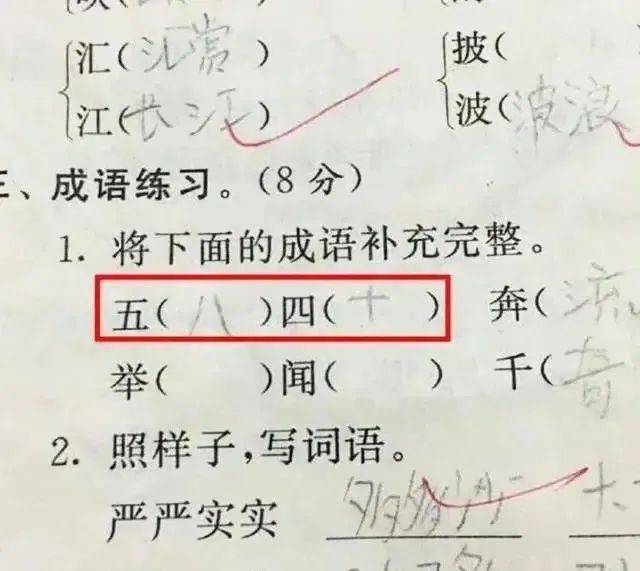 汇(汇赏 ) 披(
江(长江) 波(波浪
三、成语练习。(8分)
1. 将下面的成语补充完整。
五(八 )四(十 ) 奔(流
举( )闻( ) 千(奇
2. 照样子,写词语。
严严实实 多多少少